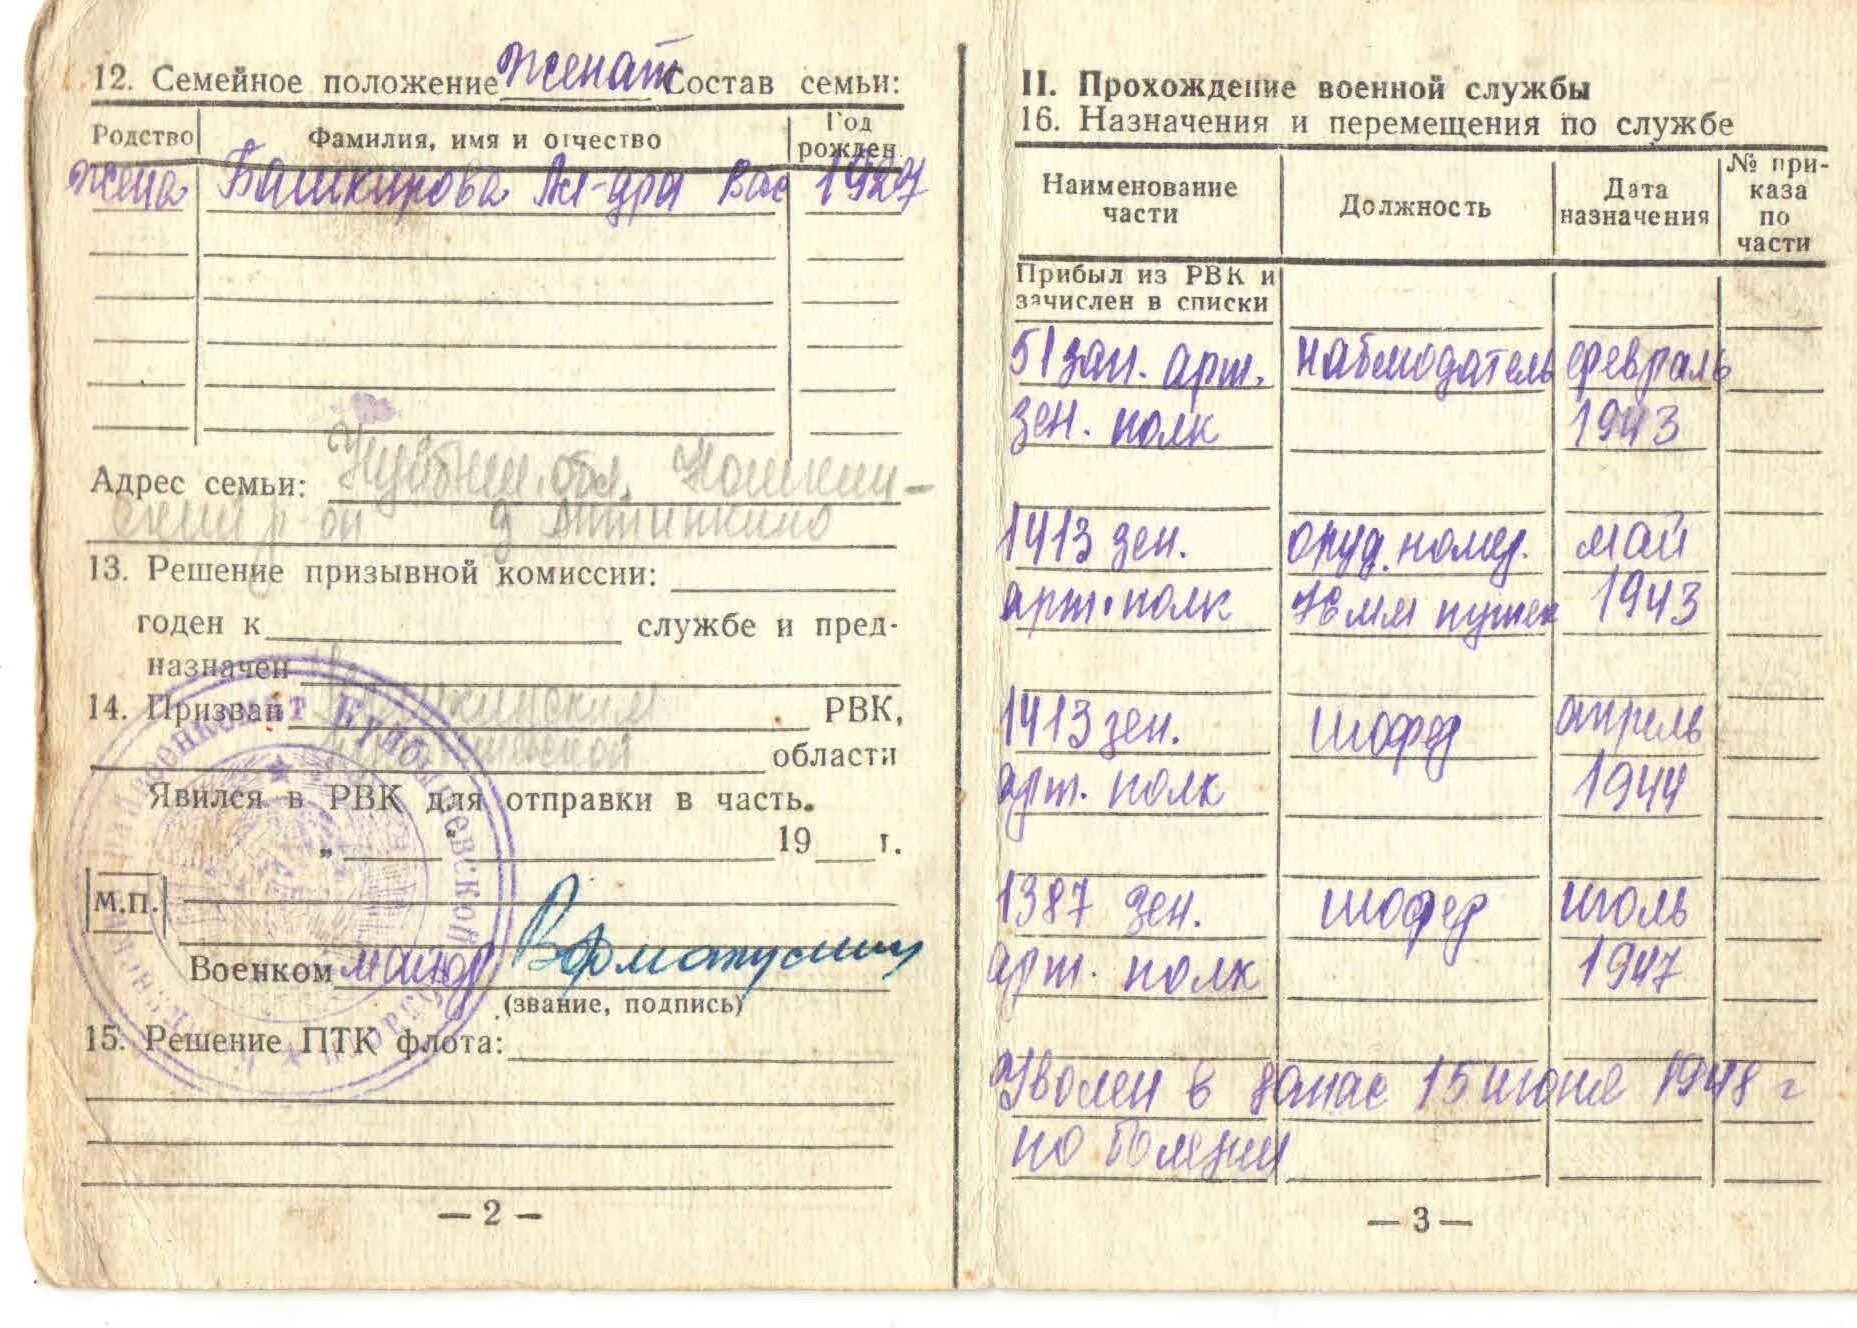 12. Семейное положение женат Состав семьи:
Родство Фамилия, имя и отчество Год рожден.
жена Башкирова Ал-дра Вас 1927
Адрес семьи: Куйбыш. обл. Кошкин-
ский р-он д
13. Решение призывной комиссии:
годен к служბе и пред-
назначен
14. Призван Кошкинским РВК,
Куйбышевской области
Явился в РВК для отправки в часть.
„ “ 19 г.
М.П.
Военком майор
(звание, подпись)
15. Решение ПТК флота:
— 2 —
II. Прохождение военной службы
16. Назначения и перемещения по службе
Наименование части Должность Дата назначения № при-каза по части
Прибыл из РВК и
зачислен в списки
51 зап. арт. наблюдатель февраль
зен. полк 1943
1413 зен. оруд. номер. май
арт. полк 76 мм пушек 1943
1413 зен. шофер апрель
арт. полк 1944
1387 зен. шофер июль
арт. полк 1947
Уволен в запас 15 июня 1948 г
по болезни
— 3 —